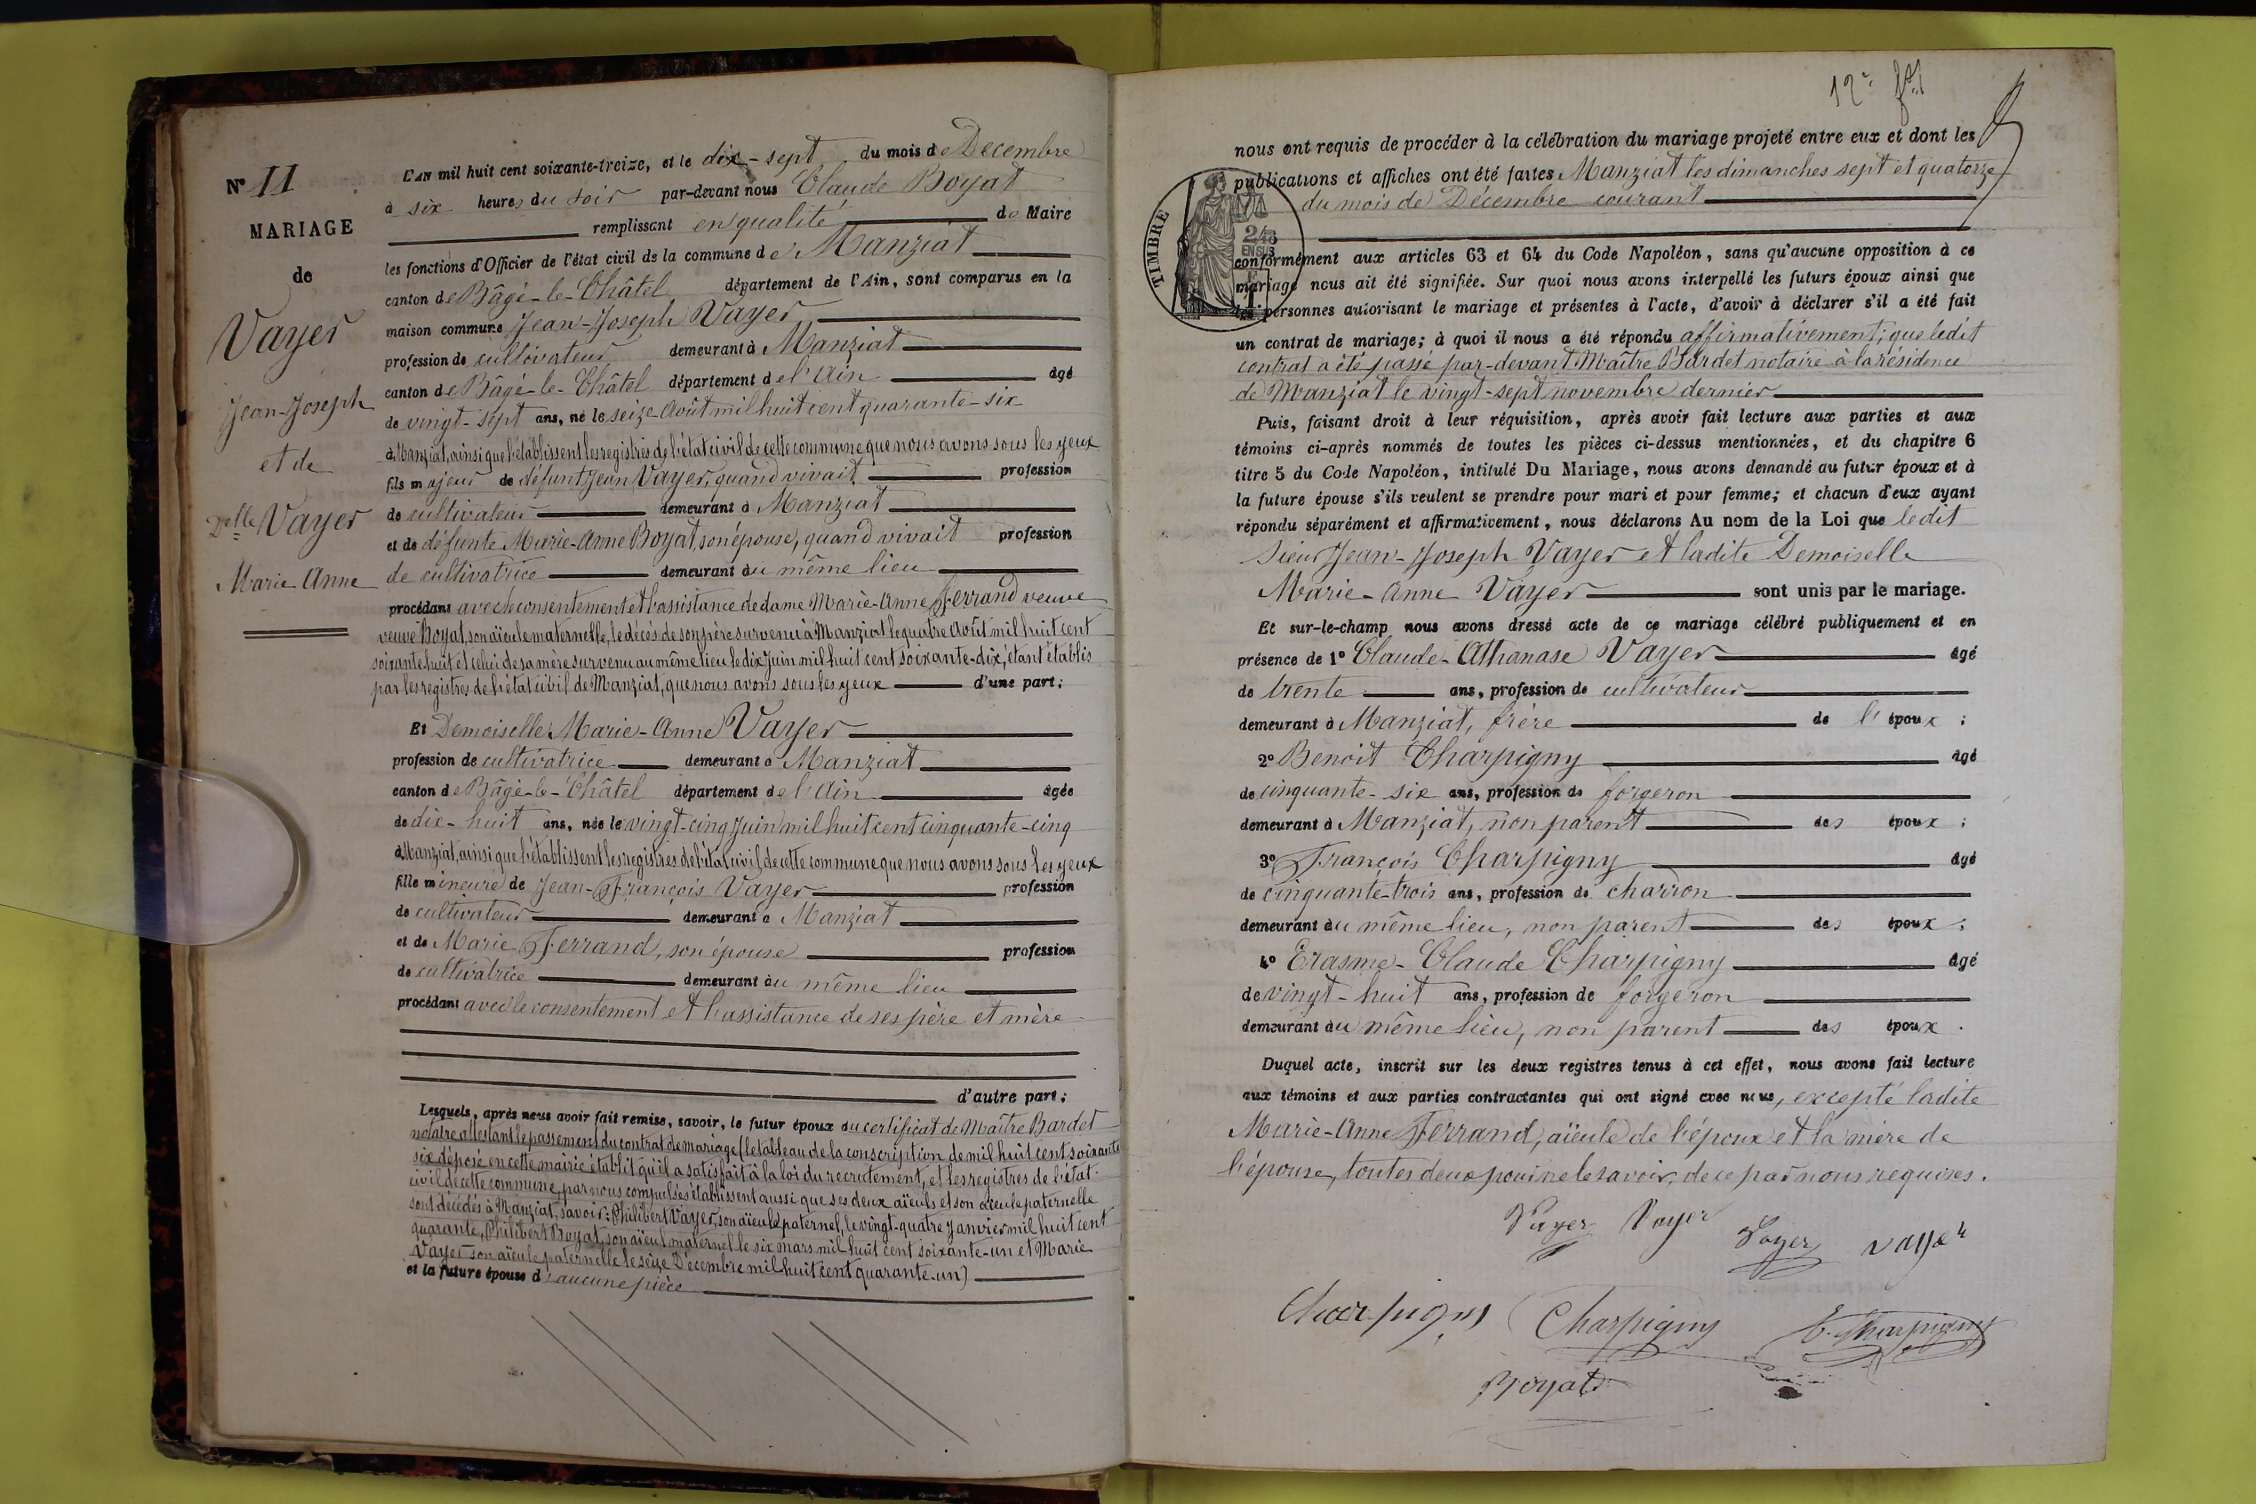 Nº 11
MARIAGE
de
Vayer
Jean-Joseph
et de
Dlle Vayer
Marie Anne
L'AN mil huit cent soixante-treize, et le dix-sept du mois de Décembre
à six heures du soir par-devant nous Claude Boyat
remplissant en qualité de Maire
les fonctions d'Officier de l'état civil de la commune de Manziat
canton de Bâgé-le-Châtel département de l'Ain, sont comparus en la
maison commune Jean-Joseph Vayer
profession de cultivateur demeurant à Manziat
canton de Bâgé-le-Châtel département de l'Ain âgé
de vingt-sept ans, né le seize Août mil huit cent quarante-six
à Manziat, ainsi que l'établissent les registres de l'état civil de cette commune que nous avons sous les yeux
fils majeur de défunt Jean Vayer, quand vivait profession
de cultivateur demeurant à Manziat
et de défunte Marie-Anne Boyat, son épouse, quand vivait profession
de cultivatrice demeurant au même lieu
procédant avec le consentement et l'assistance de dame Marie-Anne Ferrand veuve
veuve Boyat, son aïeule maternelle, le décès de son père survenu à Manziat le quatre Août mil huit cent
soixante huit et celui de sa mère survenu au même lieu le dix Juin mil huit cent soixante-dix, étant établis
par les registres de l'état civil de Manziat, que nous avons sous les yeux d'une part;
Et Demoiselle Marie-Anne Vayer
profession de cultivatrice demeurant à Manziat
canton de Bâgé-le-Châtel département de l'Ain âgée
de dix-huit ans, née le vingt-cinq Juin mil huit cent cinquante-cinq
à Manziat, ainsi que l'établissent les registres de l'état civil de cette commune que nous avons sous les yeux
fille mineure de Jean-François Vayer profession
de cultivateur demeurant à Manziat
et de Marie Ferrand, son épouse profession
de cultivatrice demeurant au même lieu
procédant avec le consentement et l'assistance de ses père et mère
d'autre part;
Lesquels, après nous avoir fait remise, savoir, le futur époux du certificat de Maître Bardet
notaire attestant le passement du contrat de mariage (le tableau de la conscription de mil huit cent soixante
six déposé en cette mairie établit qu'il a satisfait à la loi du recrutement, et les registres de l'état-
civil de cette commune, par nous compulsés établissent aussi que ses deux aïeuls et son aïeule paternelle
sont décédés à Manziat, savoir: Philibert Vayer, son aïeul paternel, le vingt-quatre Janvier mil huit cent
quarante, Philibert Boyat, son aïeul maternel le six mars mil huit cent soixante-un et Marie
Vayer son aïeule paternelle le seize Décembre mil huit cent quarante-un)
et la future épouse d'aucune pièce
12e
nous ont requis de procéder à la célébration du mariage projeté entre eux et dont les
publications et affiches ont été faites Manziat les dimanches sept et quatorze
du mois de Décembre courant
TIMBRE
conformément aux articles 63 et 64 du Code Napoléon, sans qu'aucune opposition à ce
mariage nous ait été signifiée. Sur quoi nous avons interpellé les futurs époux ainsi que
les personnes autorisant le mariage et présentes à l'acte, d'avoir à déclarer s'il a été fait
un contrat de mariage; à quoi il nous a été répondu affirmativement; que ledit
contrat a été passé par-devant Maître Bardet notaire à la résidence
de Manziat le vingt-sept novembre dernier
Puis, faisant droit à leur réquisition, après avoir fait lecture aux parties et aux
témoins ci-après nommés de toutes les pièces ci-dessus mentionnées, et du chapitre 6
titre 5 du Code Napoléon, intitulé Du Mariage, nous avons demandé au futur époux et à
la future épouse s'ils veulent se prendre pour mari et pour femme; et chacun d'eux ayant
répondu séparément et affirmativement, nous déclarons Au nom de la Loi que ledit
Sieur Jean-Joseph Vayer et ladite Demoiselle
Marie-Anne Vayer sont unis par le mariage.
Et sur-le-champ nous avons dressé acte de ce mariage célébré publiquement et en
présence de 1º Claude-Athanase Vayer âgé
de trente ans, profession de cultivateur
demeurant à Manziat, frère de l'époux;
2º Benoit Charpigny âgé
de cinquante-six ans, profession de forgeron
demeurant à Manziat, non parent des époux;
3º François Charpigny âgé
de cinquante-trois ans, profession de charron
demeurant au même lieu, non parent des époux;
4º Erasme-Claude Charpigny âgé
de vingt-huit ans, profession de forgeron
demeurant au même lieu, non parent des époux.
Duquel acte, inscrit sur les deux registres tenus à cet effet, nous avons fait lecture
aux témoins et aux parties contractantes qui ont signé avec nous, excepté ladite
Marie-Anne Ferrand, aïeule de l'époux et la mère de
l'épouse, toutes deux pour ne le savoir, de ce par nous requises.
Vayer Vayer Vayer vayer
Charpigny Charpigny E. Charpigny
Boyat